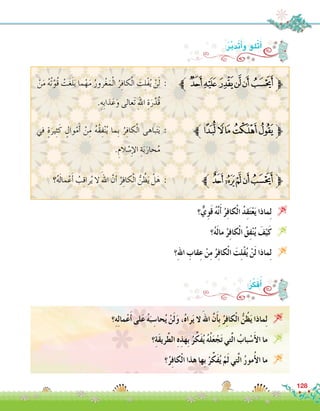 أَتْلو وَأَتَدَبَّرُ
﴿ أَيَحْسَبُ أَن لَّن يَقْدِرَ عَلَيْهِ أَحَدٌ ﴾ : لَنْ يُفْلِتَ الْكافِرُ الْمَغْرورُ مَهْما بَلَغَتْ قُوَّتُهُ مِنْ
قُدْرَةِ اللهِ تَعالَى وَعَذابِهِ.
﴿ يَقُولُ أَهْلَكْتُ مَالًا لُّبَدًا ﴾ : يَتَباهى الْكافِرُ بما يُنْفِقُهُ مِنْ أَمْوالٍ كَثيرَةٍ في
مُحارَبَةِ الإِسْلامِ.
﴿ أَيَحْسَبُ أَن لَّمْ يَرَهُ أَحَدٌ ﴾ : هَلْ يَظُنُّ الْكافِرُ أَنَّ اللهَ لا يُراقِبُ أَعْمالَهُ؟
لِماذا يَعْتَقِدُ الْكافِرُ أَنَّهُ قَوِيٌّ؟
كَيْفَ يُنْفِقُ الْكافِرُ مالَهُ؟
لِماذا لَنْ يُفْلِتَ الْكافِرُ مِنْ عِقابِ اللهِ؟
أُفَكِّرُ
لماذا يَظُنُّ الْكافِرُ بِأَنَّ اللهَ لا يَراهُ، وَلَنْ يُحاسِبَهُ عَلى أَعْمالِهِ؟
ما الأَسْبابُ الَّتي تَجْعَلُهُ يُفَكِّرُ بِهذِهِ الطَّريقَةِ؟
ما الأُمورُ الَّتي لَمْ يُفَكِّرْ بها هذا الْكافِرُ؟
128